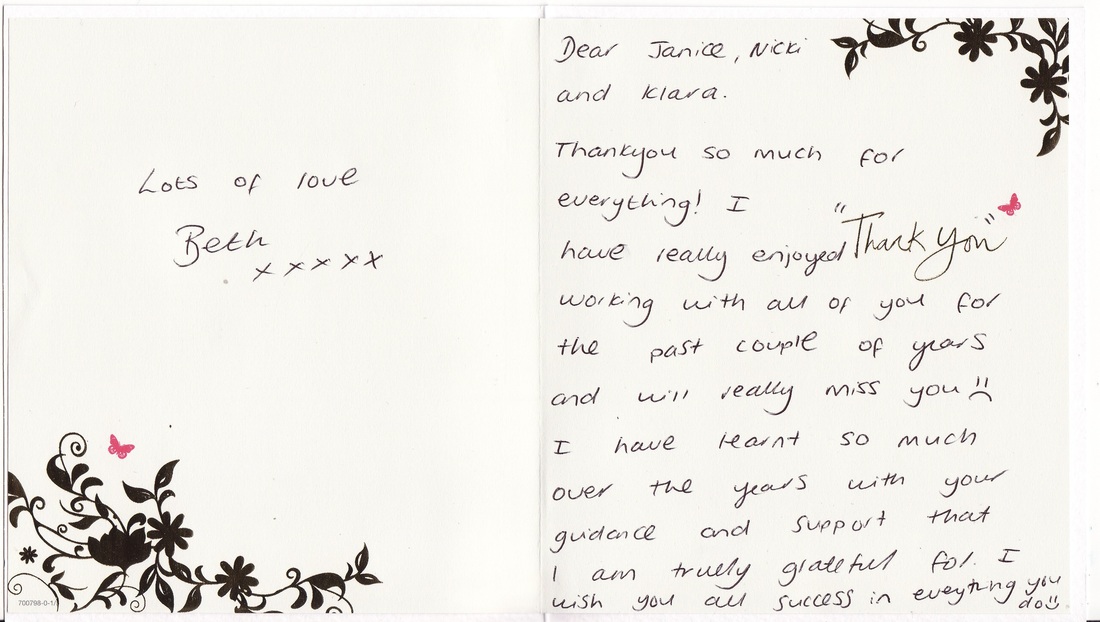 Lots of love
Beth
x x x x x
700798-0-1/
Dear Janice, Nicki
and Klara.
Thankyou so much for
everything! I
have really enjoyed
"Thank you"
working with all of you for
the past couple of years
and will really miss you ":(
I have learnt so much
over the years with your
guidance and support that
I am truely grateful for. I
wish you all success in eveything you
do :)